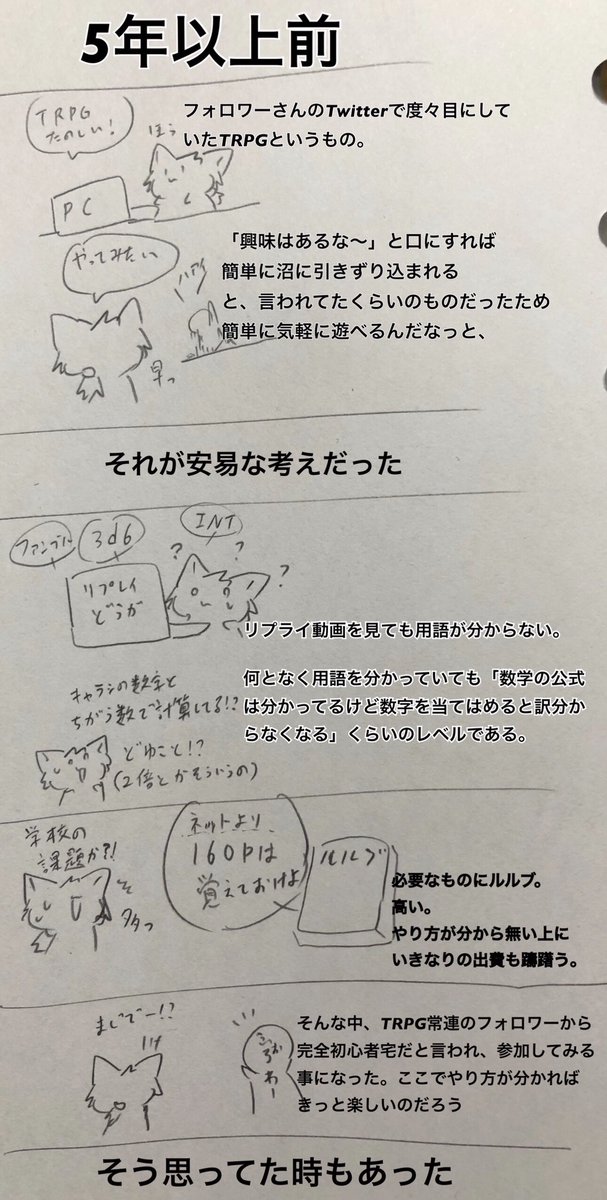 5年以上前
TRPG
たのしい!
ほう
PC
フォロワーさんのTwitterで度々目にして
いたTRPGというもの。
やってみたい
ハイ
早っ
「興味はあるな〜」と口にすれば
簡単に沼に引きずり込まれる
と、言われてたくらいのものだったため
簡単に気軽に遊べるんだなっと、
それが安易な考えだった
ファンブル
3d6
INT
?
?
?
リプレイ
どうが
リプライ動画を見ても用語が分からない。
何となく用語を分かっていても「数学の公式
は分かってるけど数字を当てはめると訳分か
らなくなる」くらいのレベルである。
キャラシの数字と
ちがう数で計算してる!?
どゆこと!?
(2倍とかそういうの)
学校の
課題か?!
多っ
ネットより
160Pは
覚えておけよ
ルルブ
必要なものにルルブ。
高い。
やり方が分から無い上に
いきなりの出費も躊躇う。
まじでー!?
ふぉろわー
そんな中、TRPG常連のフォロワーから
完全初心者宅だと言われ、参加してみる
事になった。ここでやり方が分かれば
きっと楽しいのだろう
そう思ってた時もあった